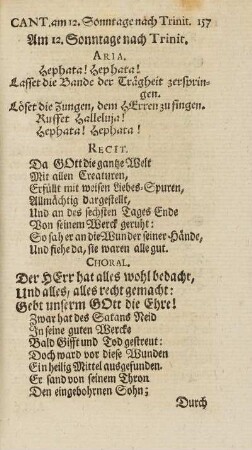 CANT. am 12. Sonntage nach Trinit. 157
Am 12. Sonntage nach Trinit.
ARIA.
Hephata! Hephata!
Lasset die Bande der Trägheit zersprin-
gen.
Löset die Zungen, dem HErren zu singen.
Ruffet Halleluja!
Hephata! Hephata!
RECIT.
Da GOtt die gantze Welt
Mit allen Creaturen,
Erfüllt mit weisen Liebes-Spuren,
Allmächtig dargestellt,
Und an des sechsten Tages Ende
Von seinem Werck geruht:
So sah er an die Wunder seiner-Hände,
Und siehe da, sie waren alle gut.
CHORAL.
Der HErr hat alles wohl bedacht,
Und alles, alles recht gemacht:
Gebt unserm GOtt die Ehre!
Zwar hat des Satans Neid
In seine guten Wercke
Bald Gifft und Tod gestreut:
Doch ward vor diese Wunden
Ein heilig Mittel ausgefunden.
Er sand von seinem Thron
Den eingebohrnen Sohn;
Durch